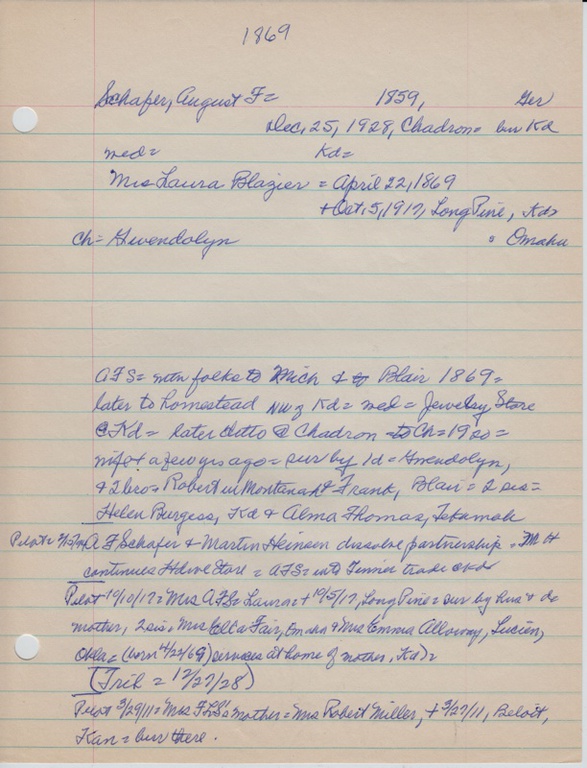 1869
Schafer, August F= 1859, Ger
Dec, 25, 1928, Chadron= bur Kd
med= Kd=
Mrs Laura Blazier = April 22, 1869
+ Oct. 5, 1917, Long Pine, Kd>
ch= Gwendolyn " Omaha
AFS= with folks to Mich & to Blair 1869=
later to homestead NW of Kd= med= Jewelry Store
@ Kd= later ditto @ Chadron = to Ch=1900=
wife + a few yrs ago= sur by 1d= Gwendolyn,
& 2 bro= Robert in Montana & Frank, Blair= 2 sis=
Helen Burgess, Kd & Alma Thomas, Tekamah
Pilot= A F Schafer & Martin Heinsen dissolve partnership = M H
continues Hdwe Store = AFS= into Tinner trade
Pilot 10/10/17= Mrs AFS= Laura= + 10/5/17, Long Pine= sur by hus & da
mother, 2 sis, Mrs Ella Fair, Omaha & Mrs Emma Alloway, Lucien,
Okla= (born 4/22/69) services at home of mother, Kd)=
(Trib = 12/27/28)
Pilot 3/29/11= Mrs mother= Mrs Robert Miller, + 3/27/11, Beloit,
Kan= bur there.